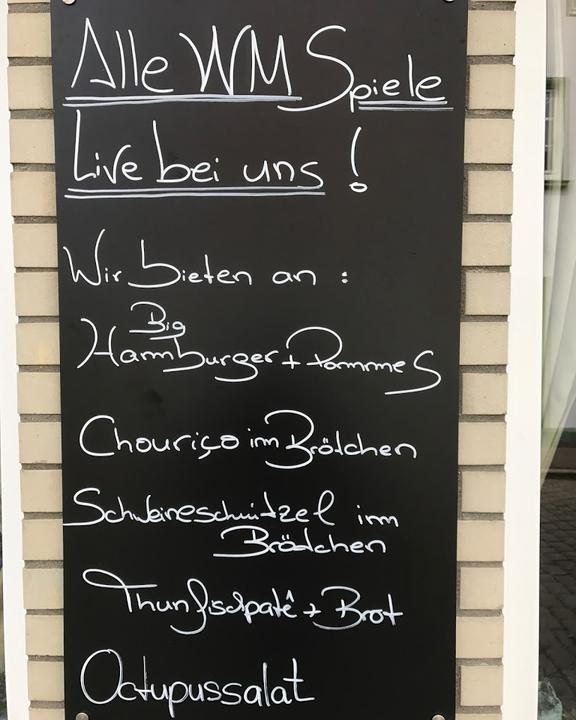 Alle WM Spiele
Live bei uns !
Wir bieten an :
Big
Hamburger + Pommes
Chouriço im Brötchen
Schweineschnitzel im
Brötchen
Thunfischpatê + Brot
Octupussalat